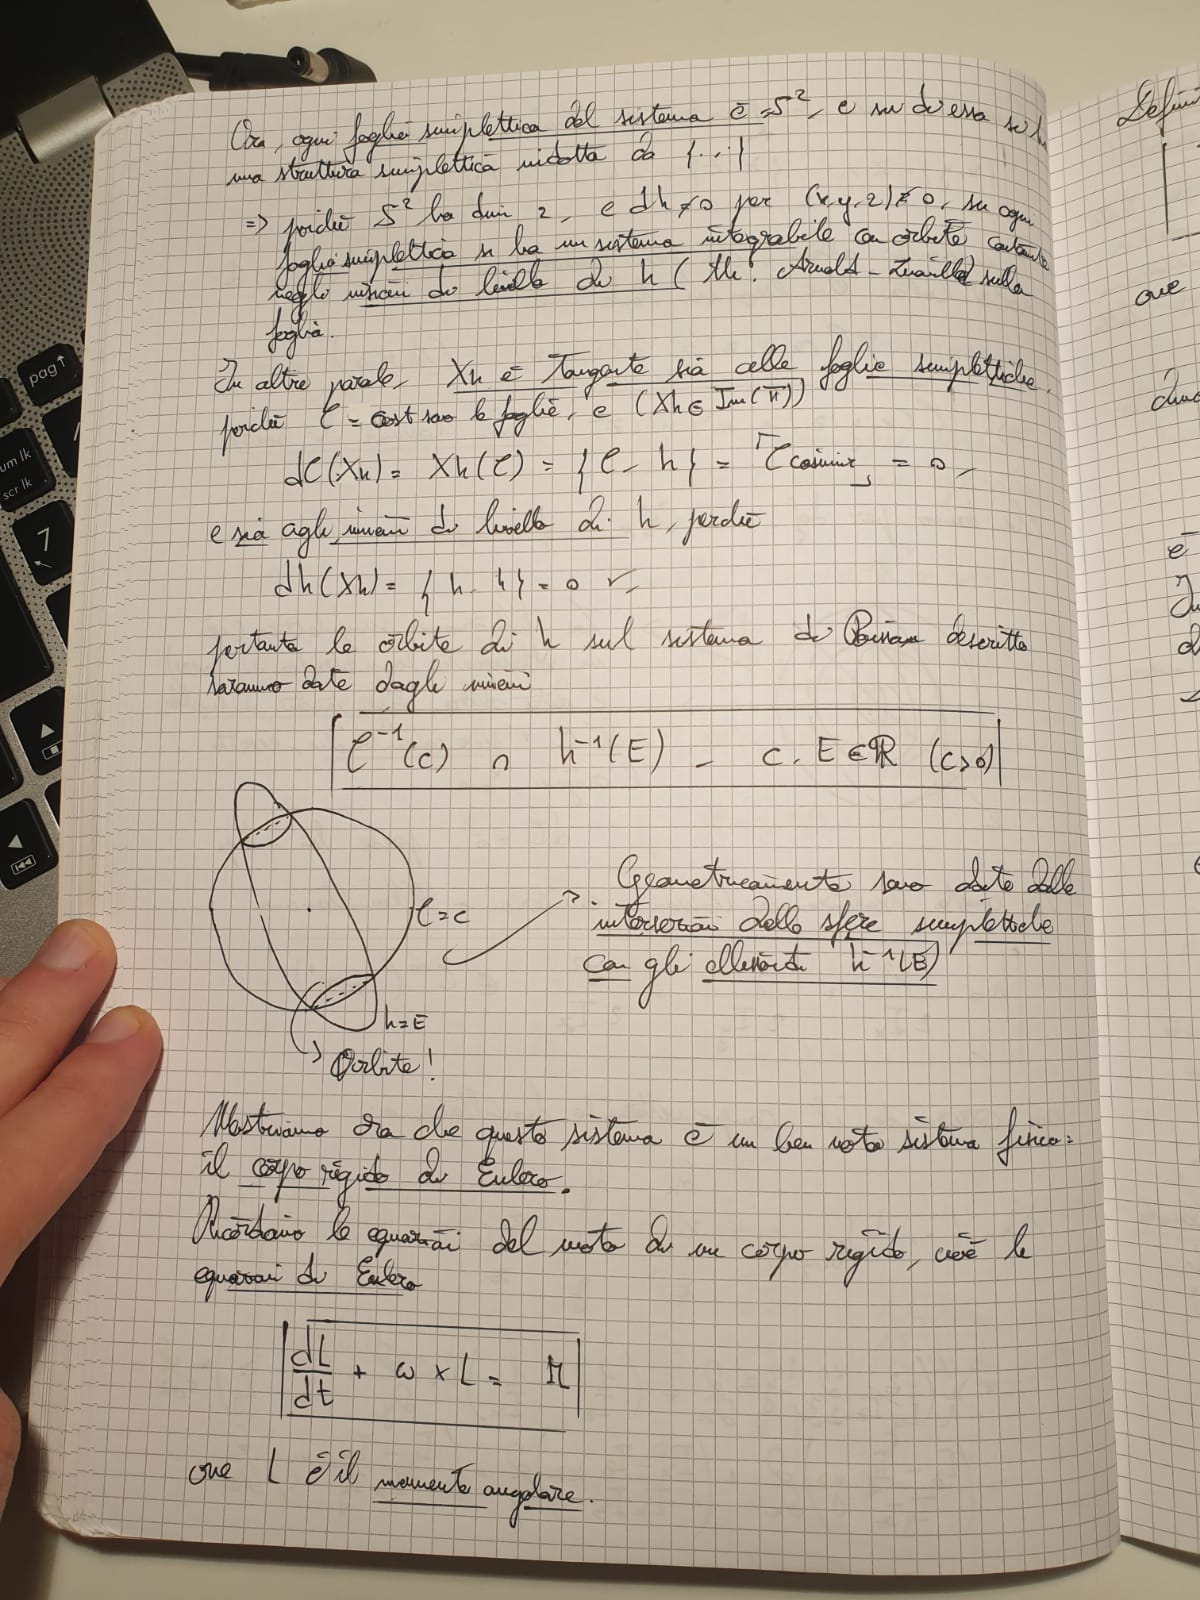 Ora, ogni foglia simplettica del sistema è ≃S², e su di essa si h
una struttura simplettica indotta da {.,.}
=> poichè S² ha dim 2, e dh≠0 per (x,y,z)≠0, su ogni
foglia simplettica si ha un sistema integrabile con orbite contenute
negli insiemi di livello di h (th. Arnold - Liouville) sulla
foglia.
In altre parole, Xh è tangente sia alle foglie simplettiche,
poichè C = cost sono le foglie, e (Xh ∈ Im(π))
dC(Xh) = Xh(C) = {C, h} = ⌈C casimir⌋ = 0,
e sia agli insiemi di livello di h, perchè
dh(Xh) = {h, h} = 0 ✓,
pertanto le orbite di h sul sistema di Poisson descritto
saranno date dagli insiemi
C⁻¹(c) ∩ h⁻¹(E), c, E ∈ ℝ (c>0)
C=c
Geometricamente sono date dalle
intersezioni delle sfere simplettiche
con gli ellissoidi h⁻¹(E)
h=E
Orbite!
Mostriamo ora che questo sistema è un ben noto sistema fisico:
il corpo rigido di Eulero.
Ricordiamo le equazioni del moto di un corpo rigido, cioè le
equazioni di Eulero
dL/dt + ω × L = M
ove L è il momento angolare.
Defini
ove
è